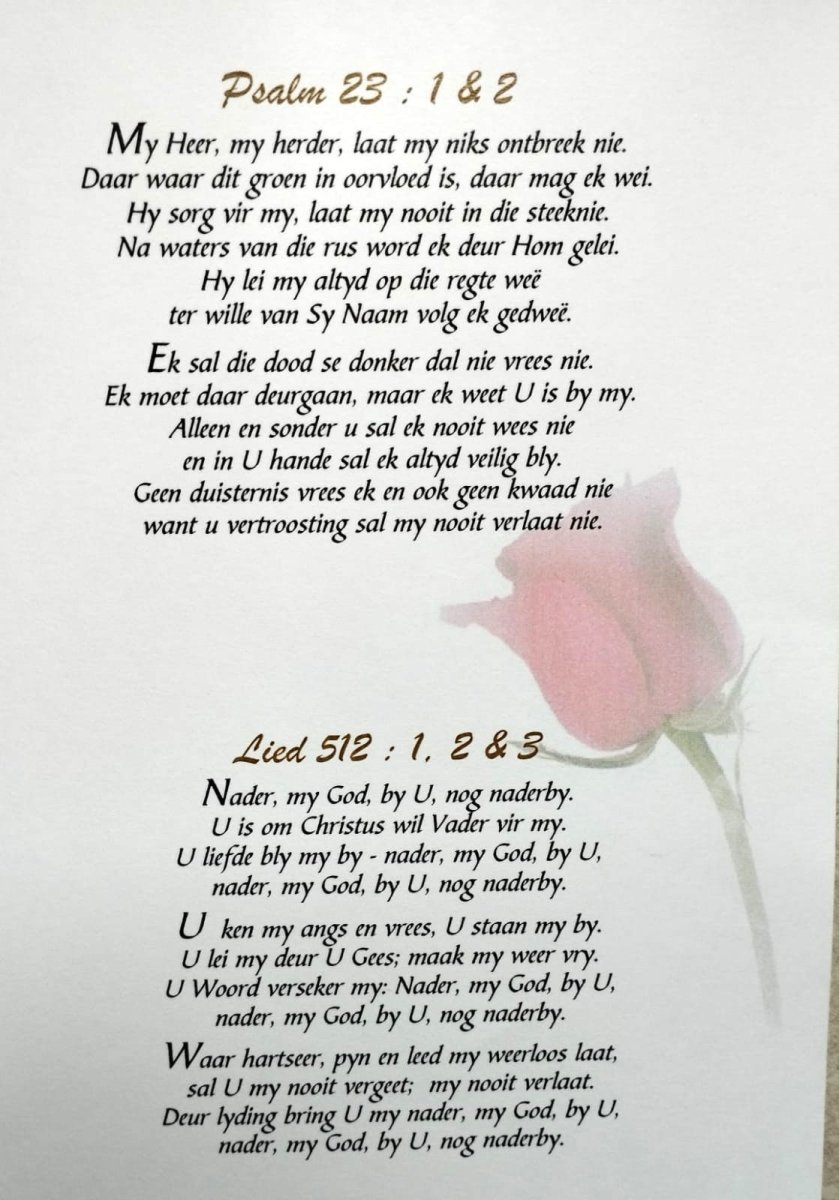 Psalm 23 : 1 & 2
My Heer, my herder, laat my niks ontbreek nie.
Daar waar dit groen in oorvloed is, daar mag ek wei.
Hy sorg vir my, laat my nooit in die steeknie.
Na waters van die rus word ek deur Hom gelei.
Hy lei my altyd op die regte weë
ter wille van Sy Naam volg ek gedweë.
Ek sal die dood se donker dal nie vrees nie.
Ek moet daar deurgaan, maar ek weet U is by my.
Alleen en sonder u sal ek nooit wees nie
en in U hande sal ek altyd veilig bly.
Geen duisternis vrees ek en ook geen kwaad nie
want u vertroosting sal my nooit verlaat nie.
Lied 512 : 1, 2 & 3
Nader, my God, by U, nog naderby.
U is om Christus wil Vader vir my.
U liefde bly my by - nader, my God, by U,
nader, my God, by U, nog naderby.
U ken my angs en vrees, U staan my by.
U lei my deur U Gees; maak my weer vry.
U Woord verseker my: Nader, my God, by U,
nader, my God, by U, nog naderby.
Waar hartseer, pyn en leed my weerloos laat,
sal U my nooit vergeet; my nooit verlaat.
Deur lyding bring U my nader, my God, by U,
nader, my God, by U, nog naderby.